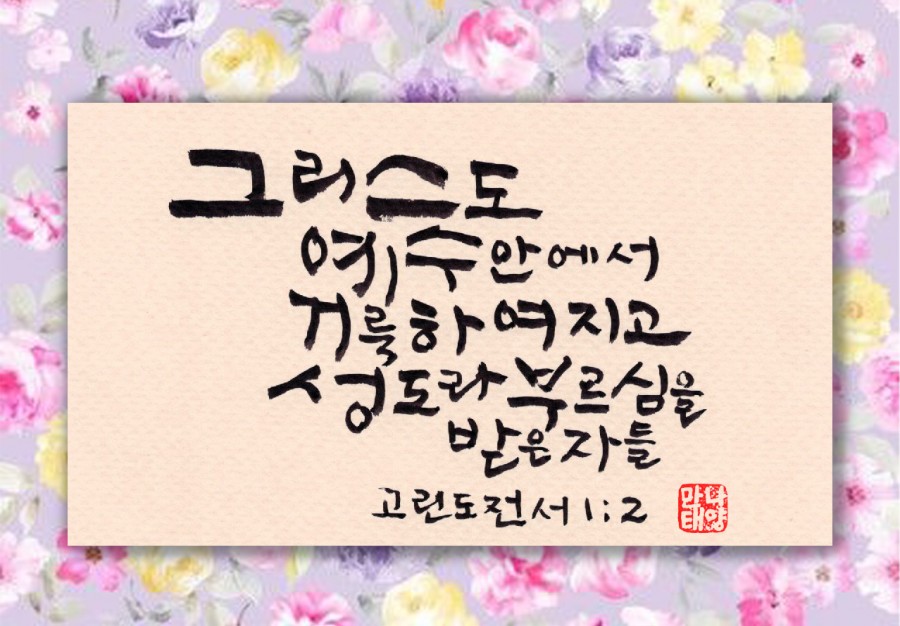 그리스도
예수안에서
거룩하여지고
성도라부르심을
받은자들
고린도전서1:2
만나
태양